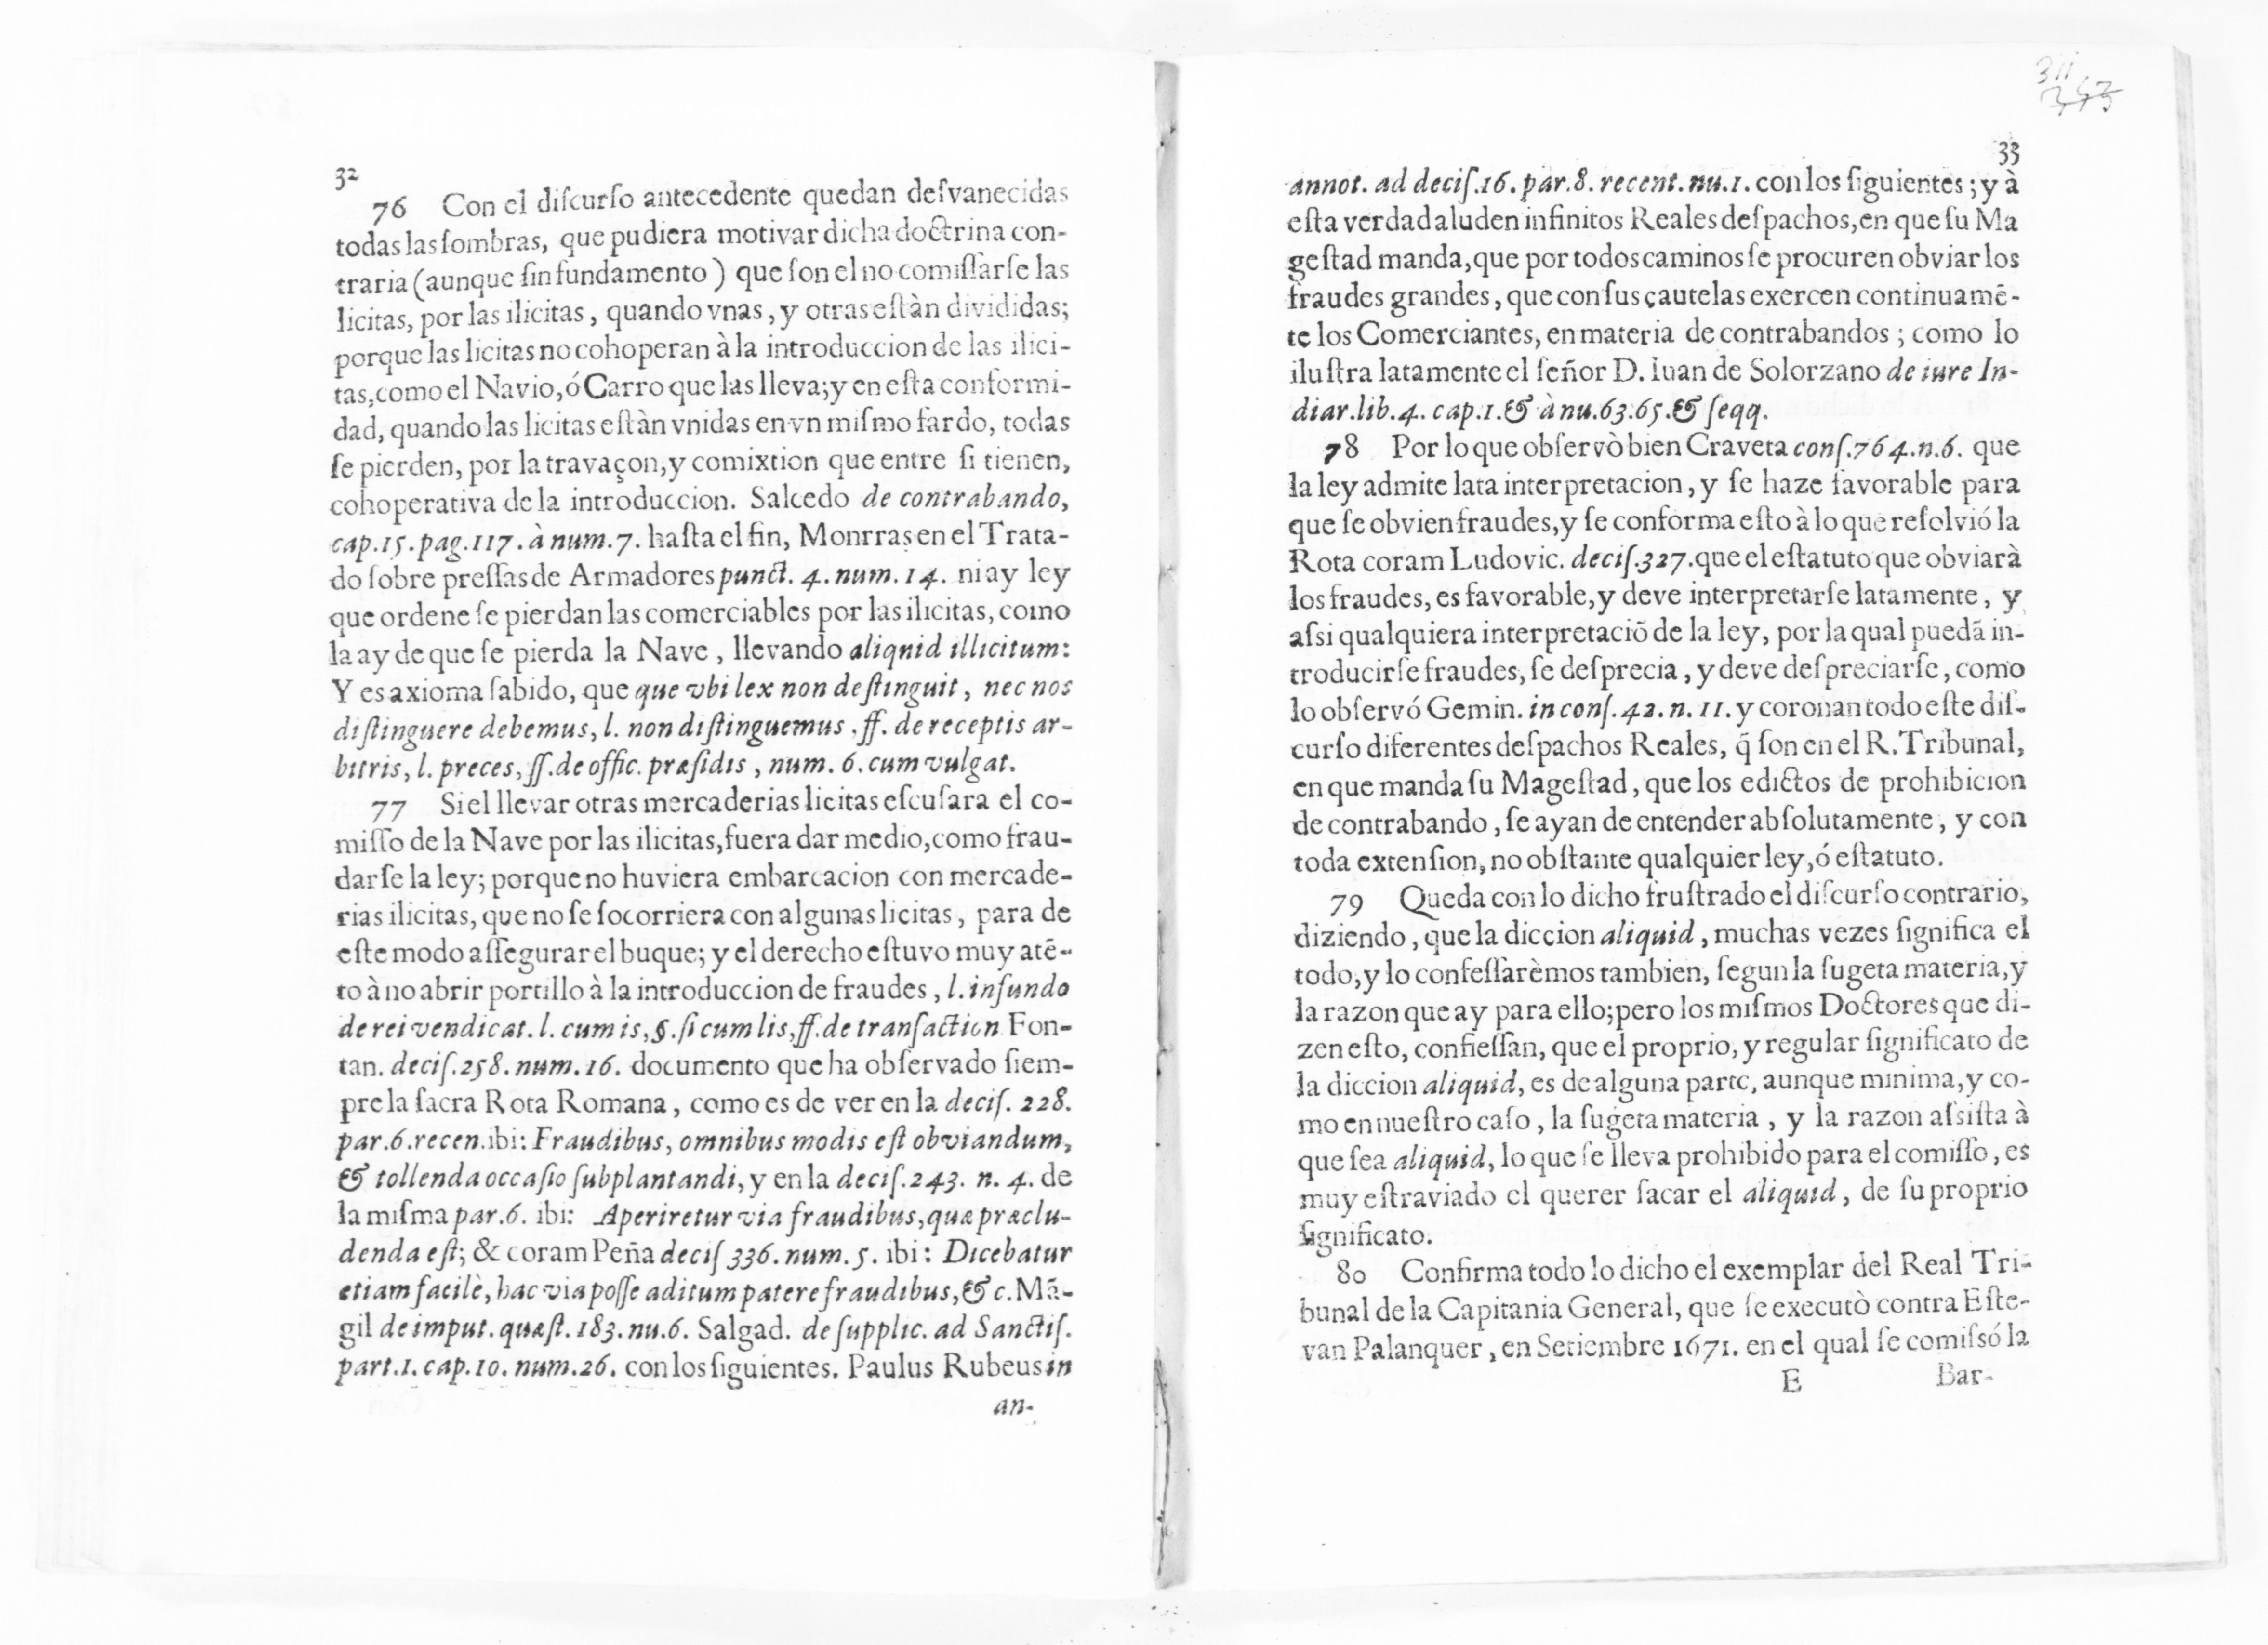 32
76 Con el diſcurſo antecedente quedan deſvanecidas
todas las ſombras, que pudiera motivar dicha doctrina con-
traria (aunque ſin fundamento) que ſon el no comiſſarſe las
licitas, por las ilicitas, quando vnas, y otras eſtàn divididas;
porque las licitas no cohoperan à la introduccion de las ilici-
tas, como el Navio, ó Carro que las lleva; y en eſta conformi-
dad, quando las licitas eſtàn vnidas en vn miſmo fardo, todas
ſe pierden, por la travaçon, y comixtion que entre ſi tienen,
cohoperativa de la introduccion. Salcedo de contrabando,
cap.15.pag.117. à num.7. haſta el fin, Monrras en el Trata-
do ſobre preſſas de Armadores punct. 4. num. 14. ni ay ley
que ordene ſe pierdan las comerciables por las ilicitas, como
la ay de que ſe pierda la Nave, llevando aliqnid illicitum:
Y es axioma ſabido, que que vbi lex non deſtinguit, nec nos
diſtinguere debemus, l. non diſtinguemus. ff. de receptis ar-
bitris, l. preces, ff. de offic. præſidis, num. 6. cum vulgat.
77 Si el llevar otras mercaderias licitas eſcuſara el co-
miſſo de la Nave por las ilicitas, fuera dar medio, como frau-
darſe la ley; porque no huviera embarcacion con mercade-
rias ilicitas, que no ſe ſocorriera con algunas licitas, para de
eſte modo aſſegurar el buque; y el derecho eſtuvo muy atē-
to à no abrir portillo à la introduccion de fraudes, l. in fundo
de rei vendicat. l. cum is, §. ſi cum lis, ff. de tranſaction Fon-
tan. deciſ.258. num.16. documento que ha obſervado ſiem-
pre la ſacra Rota Romana, como es de ver en la deciſ. 228.
par.6.recen. ibi: Fraudibus, omnibus modis eſt obviandum,
& tollenda occaſio ſubplantandi, y en la deciſ.243. n. 4. de
la miſma par.6. ibi: Aperiretur via fraudibus, quæ præclu-
denda eſt; & coram Peña deciſ 336. num. 5. ibi: Dicebatur
etiam facilè, hac via poſſe aditum patere fraudibus, &c. Mā-
gil de imput. quæſt. 183. nu.6. Salgad. de ſupplic. ad Sanctiſ.
part.1. cap.10. num.26. con los ſiguientes. Paulus Rubeus in
an-
311
33
annot. ad deciſ.16. par.8. recent. nu.1. con los ſiguientes; y à
eſta verdad aluden infinitos Reales deſpachos, en que ſu Ma
geſtad manda, que por todos caminos ſe procuren obviar los
fraudes grandes, que con ſus çautelas exercen continuamē-
te los Comerciantes, en materia de contrabandos; como lo
iluſtra latamente el ſeñor D. Iuan de Solorzano de iure In-
diar.lib.4. cap.1.& à nu.63.65.& ſeqq.
78 Por lo que obſervò bien Craveta conſ.764.n.6. que
la ley admite lata interpretacion, y ſe haze favorable para
que ſe obvien fraudes, y ſe conforma eſto à lo que reſolvió la
Rota coram Ludovic. deciſ.327. que el eſtatuto que obviarà
los fraudes, es favorable, y deve interpretarſe latamente, y
aſsi qualquiera interpretaciō de la ley, por la qual puedā in-
troducirſe fraudes, ſe deſprecia, y deve deſpreciarſe, como
lo obſervó Gemin. in conſ. 42. n. 11. y coronan todo eſte diſ-
curſo diferentes deſpachos Reales, q̃ ſon en el R. Tribunal,
en que manda ſu Mageſtad, que los edictos de prohibicion
de contrabando, ſe ayan de entender abſolutamente, y con
toda extenſion, no obſtante qualquier ley, ó eſtatuto.
79 Queda con lo dicho fruſtrado el diſcurſo contrario,
diziendo, que la diccion aliquid, muchas vezes ſignifica el
todo, y lo confeſſarèmos tambien, ſegun la ſugeta materia, y
la razon que ay para ello; pero los miſmos Doctores que di-
zen eſto, confieſſan, que el proprio, y regular ſignificato de
la diccion aliquid, es de alguna parte, aunque minima, y co-
mo en nueſtro caſo, la ſugeta materia, y la razon aſsiſta à
que ſea aliquid, lo que ſe lleva prohibido para el comiſſo, es
muy eſtraviado el querer ſacar el aliquid, de ſu proprio
ſignificato.
80 Confirma todo lo dicho el exemplar del Real Tri-
bunal de la Capitania General, que ſe executò contra Eſte-
van Palanquer, en Setiembre 1671. en el qual ſe comiſsó la
E Bar-